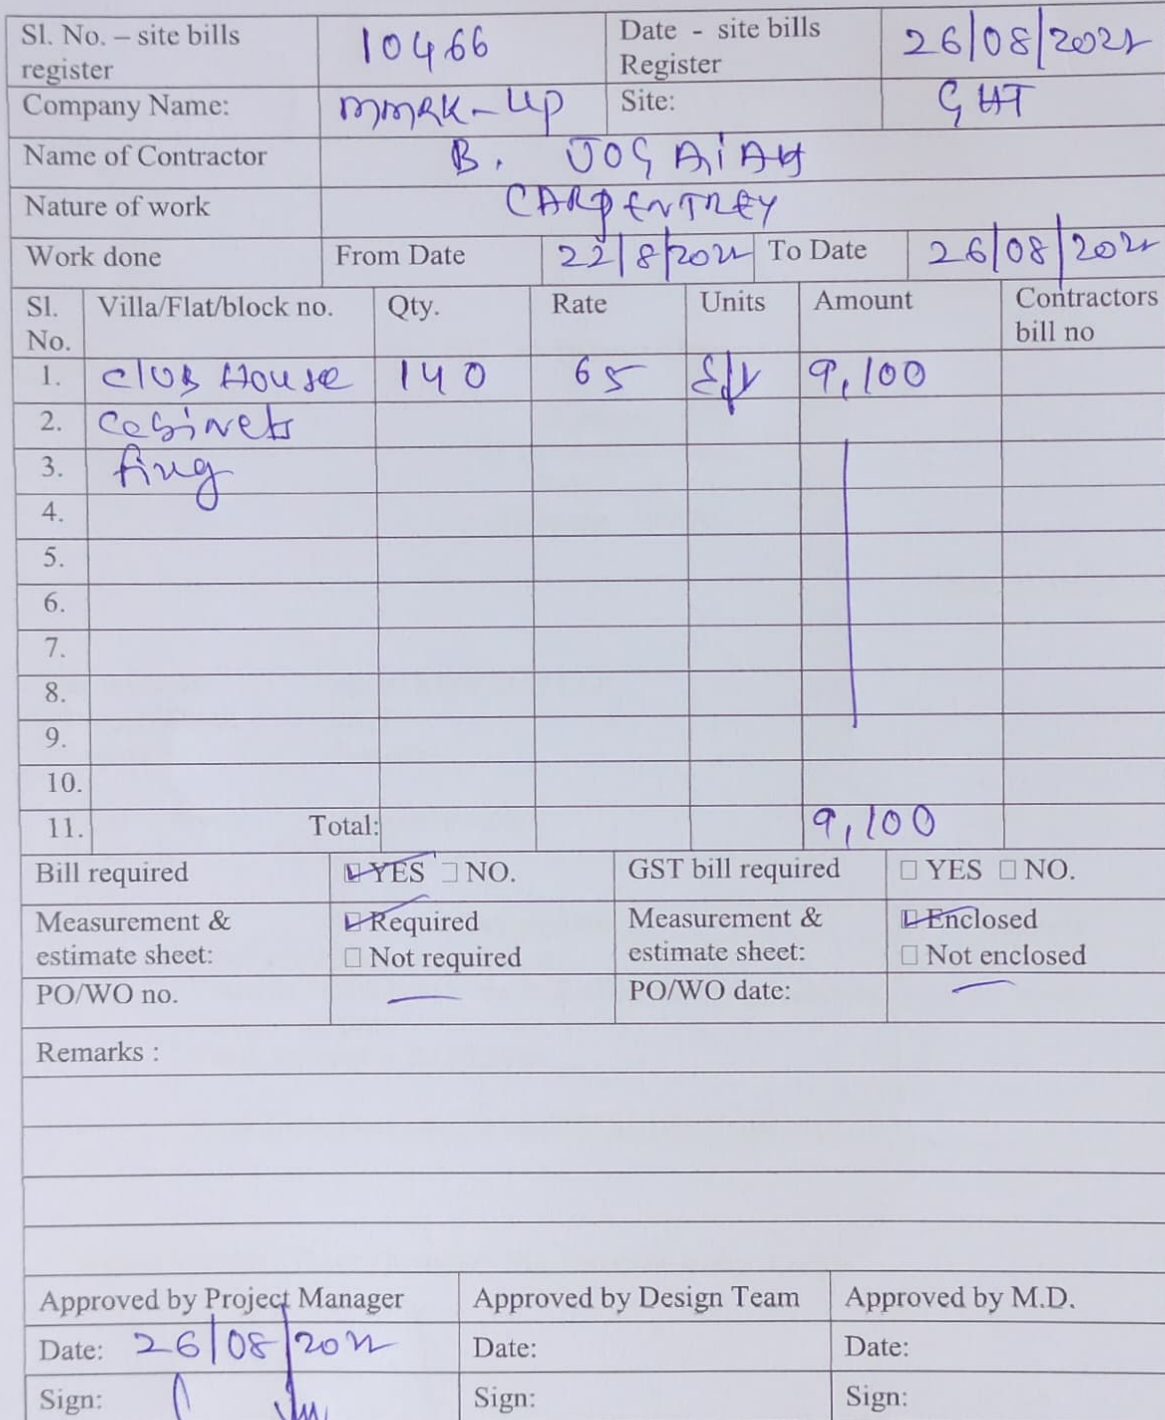 Sl. No. – site bills register 10466 Date - site bills Register 26/08/2022
Company Name: MMRK-UP Site: GHT
Name of Contractor B. JOGAiAH
Nature of work CARPENTREY
Work done From Date 22/8/2022 To Date 26/08/2022
Sl. No. Villa/Flat/block no. Qty. Rate Units Amount Contractors bill no
1. CLUB House 140 65 9,100
2. cabinets
3.
4.
5.
6.
7.
8.
9.
10.
11. Total: 9,100
Bill required YES NO. GST bill required YES NO.
Measurement & estimate sheet: Required Not required Measurement & estimate sheet: Enclosed Not enclosed
PO/WO no. — PO/WO date: —
Remarks :
Approved by Project Manager Approved by Design Team Approved by M.D.
Date: 26/08/2022 Date: Date:
Sign: Sign: Sign: